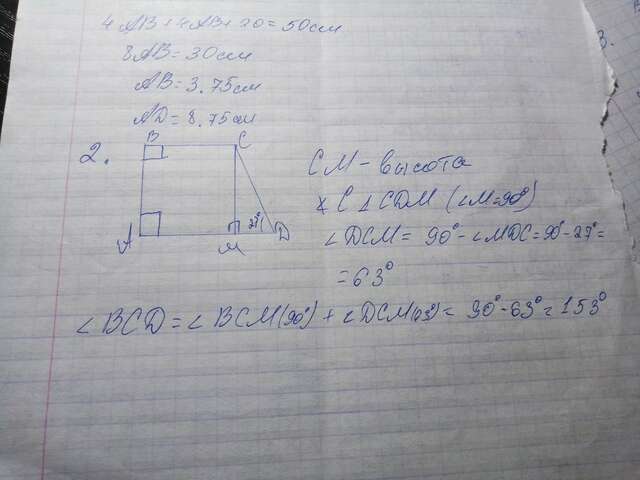 4AB + 4AB + 20 = 50см
8AB = 30см
AB = 3.75см
AD = 8.75см
2.
B C
27°
A M D
CM - высота
∠C ⊥ CDM (∠M=90°)
∠DCM = 90° - ∠MDC = 90° - 27° =
= 63°
∠BCD = ∠BCM(90°) + ∠DCM(63°) = 90° - 63° = 153°
3.